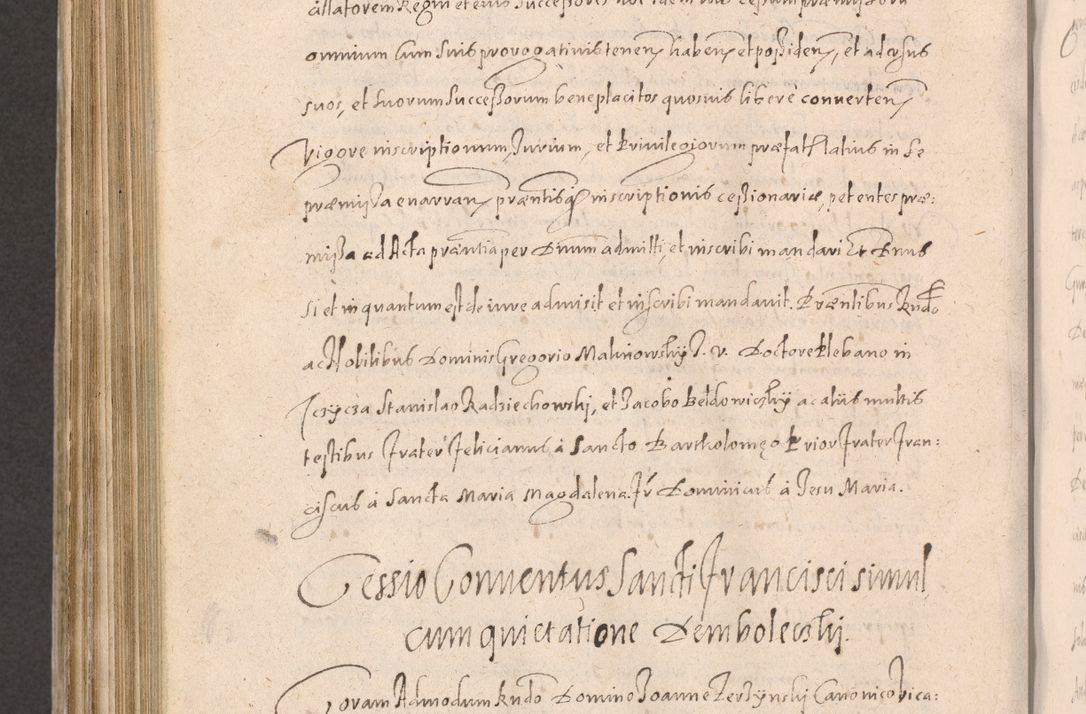 omnium cum suis prorogativis tenen habend et possiden, et ad usus
suos, et suorum successorum beneplacitos quosvis libere converten
Vigore inscriptionum, Jurium, et Privilegiorum præfat latius in se
præmissa enarran præntisq inscriptionis cessionariæ, petentes præ:
missa ad Acta præntia per Dnum admitti, et inscribi mandari Et Dnus
si et in quantum est de iure admisit et inscribi mandavit. Præntibus Rndo
ac Nobilibus Dominis Gregorio Malinowskÿ J. V. Doctore Plebano in
Stanislao Radziechowski, et Jacobo Beldowickÿ ac aliis multis
testibus Frater Felicianus à Sancto Bartholomęo Prior Frater Fran:
ciscus à Sancta Maria Magdalena. Fr Dominicus à Jesu Maria.
Cessio Conventus Sancti Francisci simul
cum quietatione Dembolecski.
Coram Admodum Rndo Domino Joanne Canonico Vica: